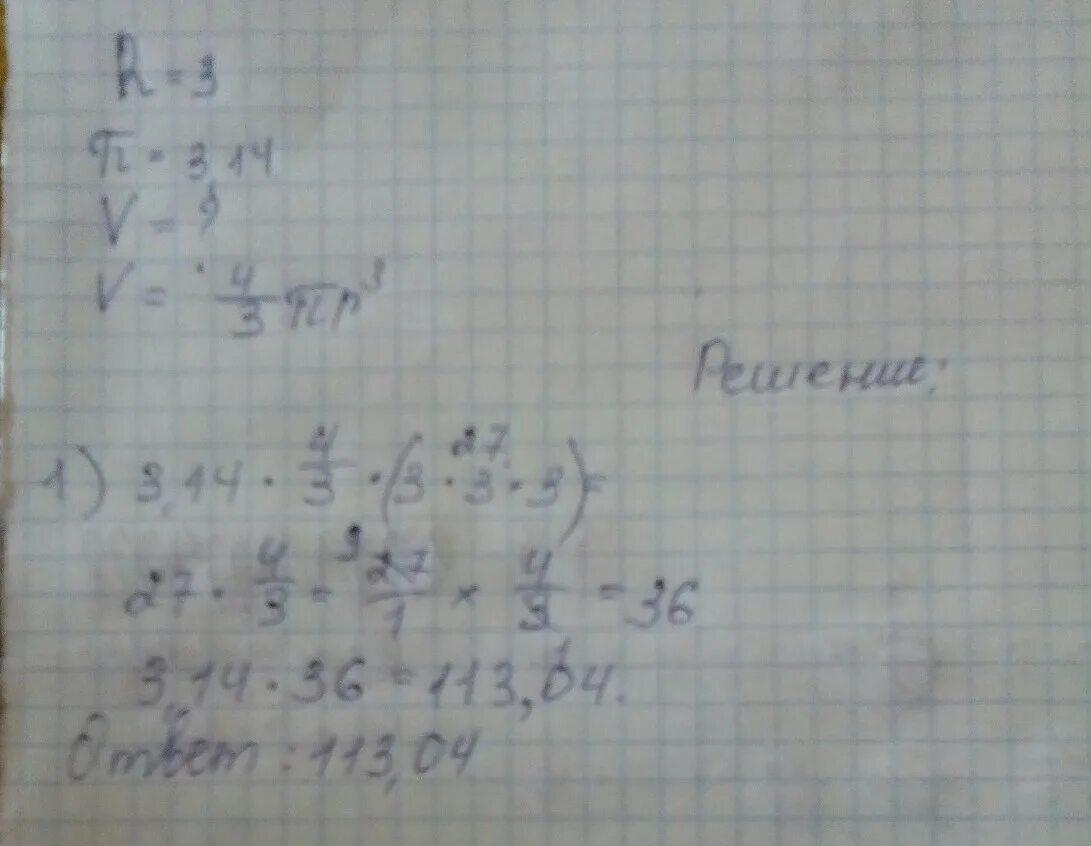 R = 3
π = 3,14
V = ?
V = 4/3 πr³
Решение:
1) 3,14 · 4/3 · (3 · 3 · 3) = 27
27 · 4/3 = 9 27/1 × 4/3 = 36
3,14 · 36 = 113,04.
Ответ: 113,04